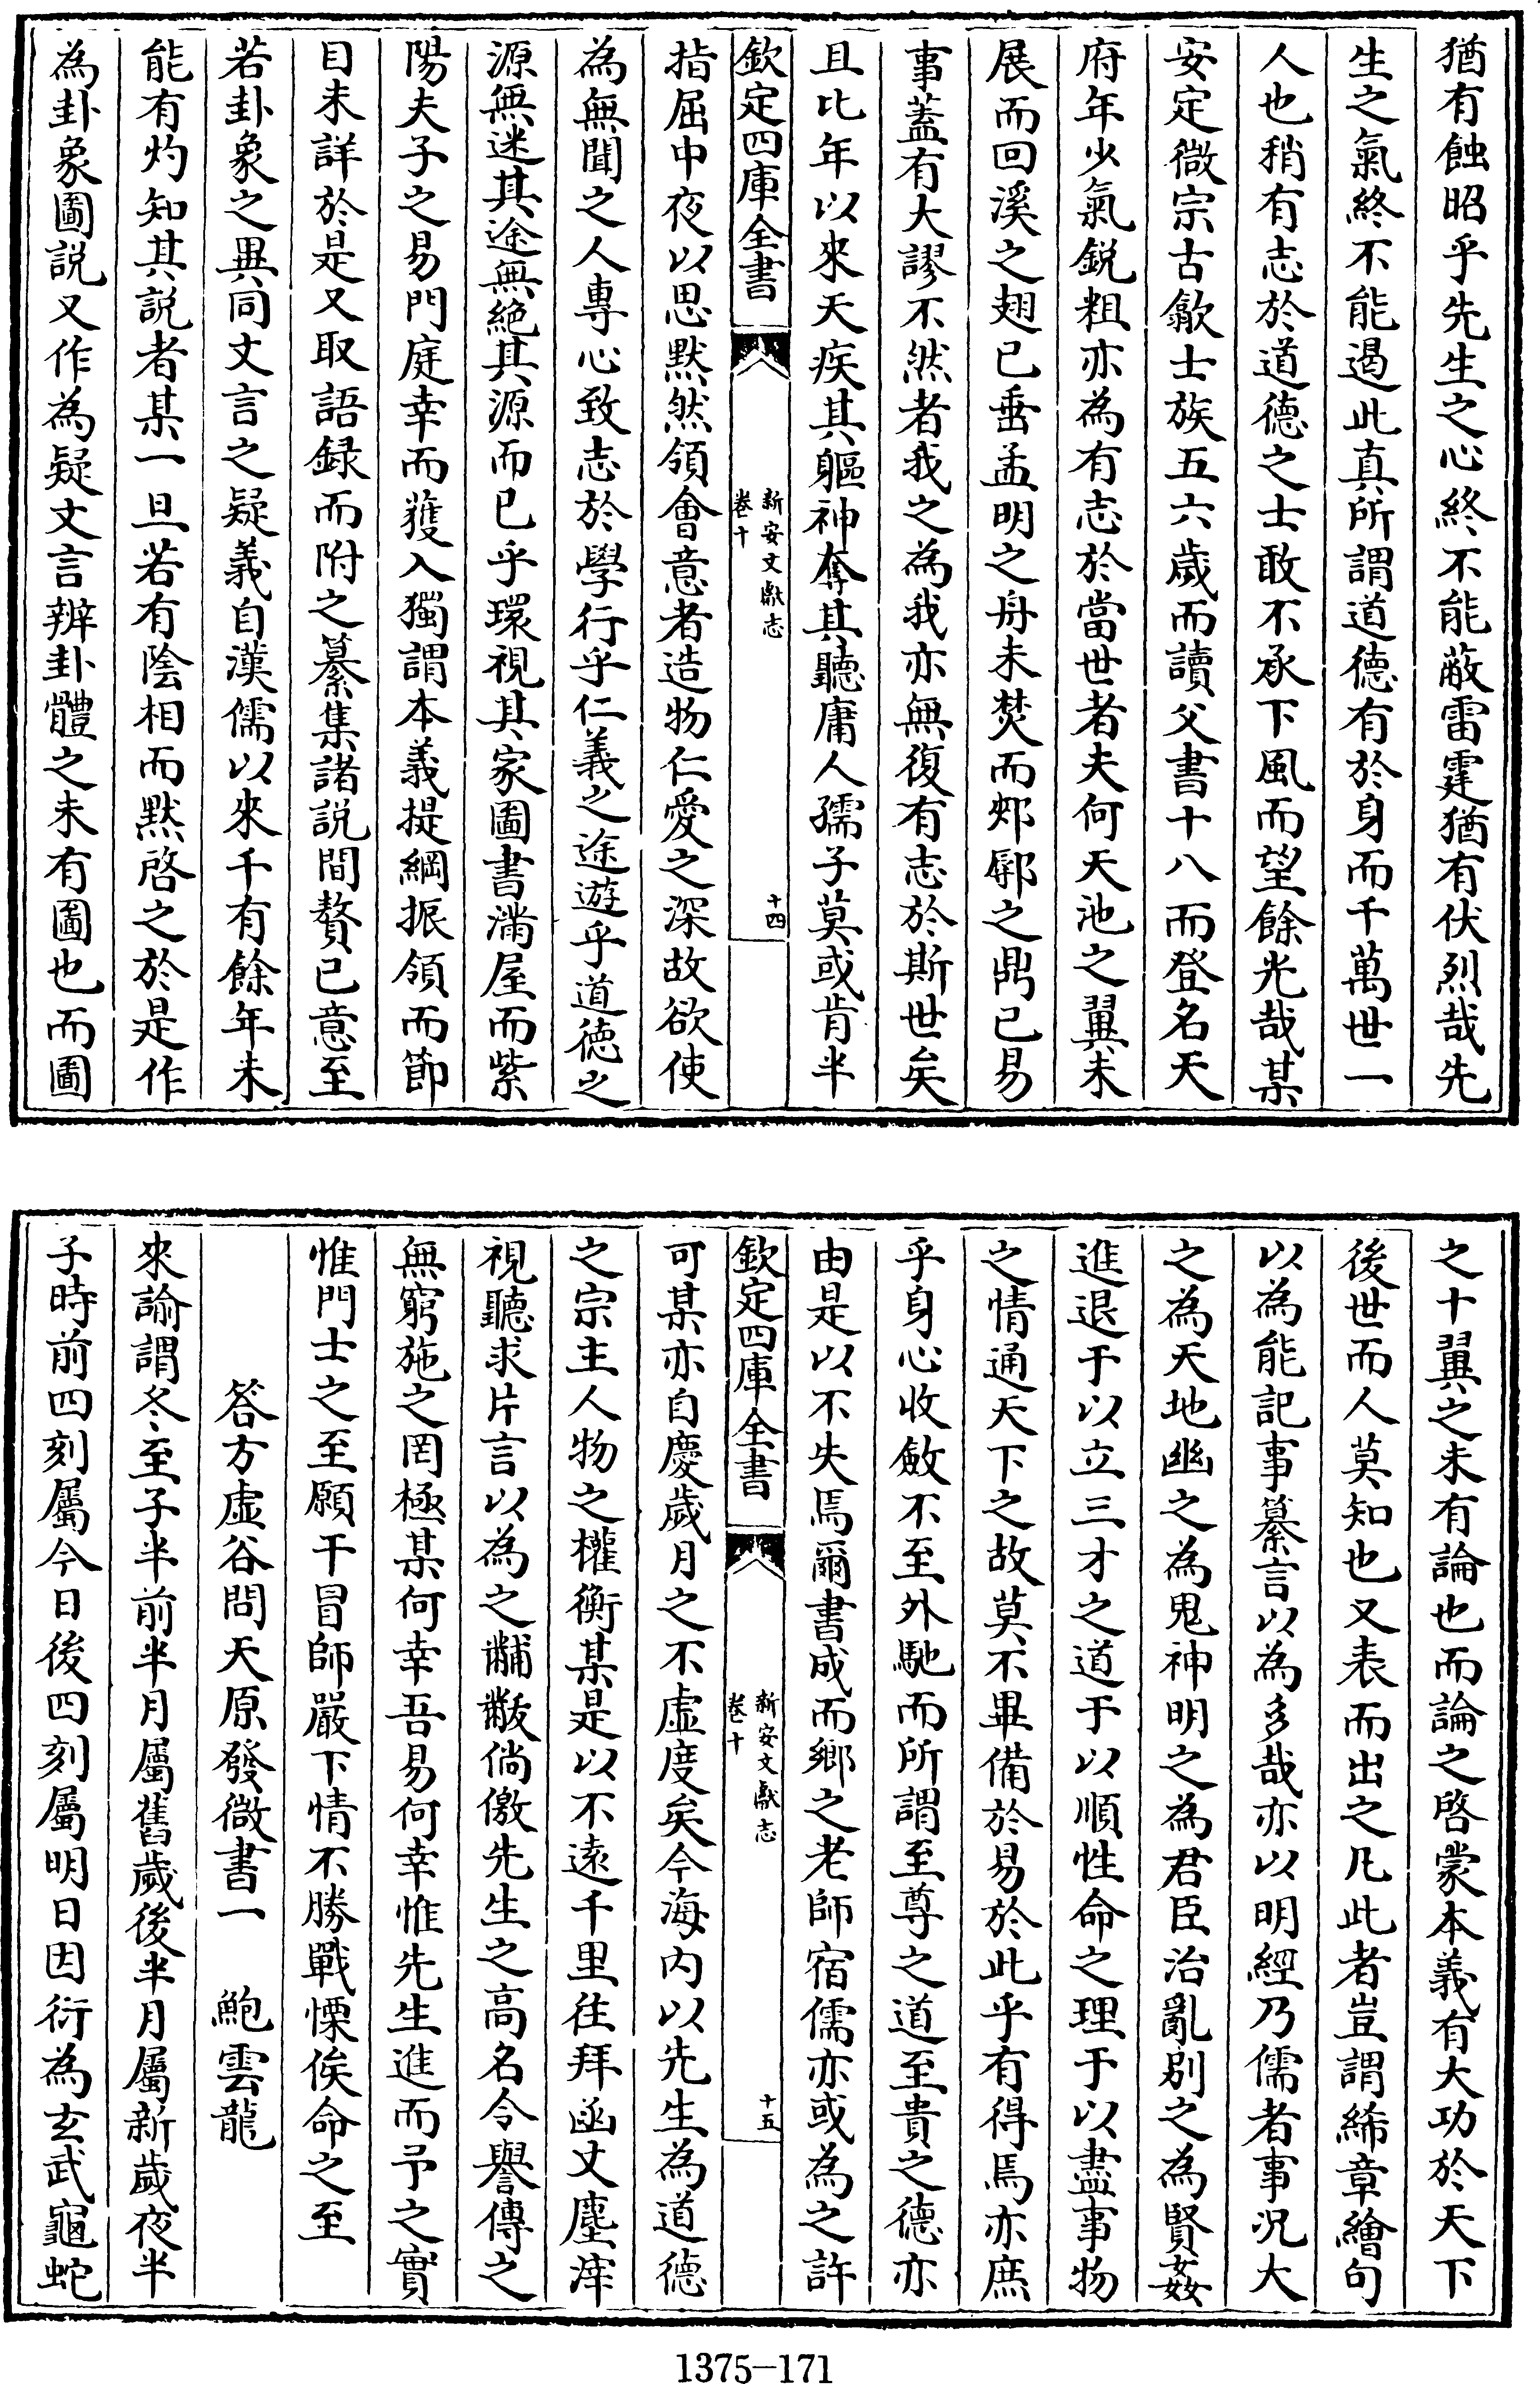 猶有蝕昭乎先生之心終不能蔽雷霆猶有伏烈哉先
生之氣終不能遏此真所謂道德有於身而千萬世一
人也稍有志於道德之士敢不承下風而望餘光哉某
安定微宗古歙士族五六歲而讀父書十八而登名天
府年少氣鋭粗亦為有志於當世者夫何天池之翼未
展而回溪之翅已垂孟明之舟未焚而郟鄏之鼎已易
事蓋有大謬不然者我之為我亦無復有志於斯世矣
且比年以來天疾其軀神奪其聽庸人孺子莫或肯半
欽定四庫全書
新安文獻志
卷十
十四
指屈中夜以思黙然領會意者造物仁愛之深故欲使
為無聞之人專心致志於學行乎仁義之途遊乎道徳之
源無迷其途無絶其源而已乎環視其家圖書滿屋而紫
陽夫子之易門庭幸而獲入獨謂本義提綱振領而節
目未詳於是又取語録而附之纂集諸説間贅已意至
若卦象之異同文言之疑義自漢儒以來千有餘年未
能有灼知其説者某一旦若有陰相而黙啓之於是作
為卦象圖説又作為疑文言辨卦體之未有圖也而圖
之十翼之未有論也而論之啓蒙本義有大功於天下
後世而人莫知也又表而出之凡此者豈謂絺章繪句
以為能記事纂言以為多哉亦以明經乃儒者事况大
之為天地幽之為鬼神明之為君臣治亂别之為賢姦
進退于以立三才之道于以順性命之理于以盡事物
之情通天下之故莫不畢備於易於此乎有得焉亦庶
乎身心收斂不至外馳而所謂至尊之道至貴之德亦
由是以不失焉爾書成而鄉之老師宿儒亦或為之許
欽定四庫全書
新安文獻志
卷十
十五
可某亦自慶歲月之不虛度矣今海内以先生為道德
之宗主人物之權衡某是以不遠千里往拜函丈塵滓
視聽求片言以為之黼黻倘儌先生之高名令譽傳之
無窮施之罔極某何幸吾易何幸惟先生進而予之實
惟門士之至願干冒師嚴下情不勝戰慄俟命之至
答方虛谷問天原發微書一　鮑雲龍
來諭謂冬至子半前半月屬舊歲後半月屬新歲夜半
子時前四刻屬今日後四刻屬明日因衍為玄武龜蛇
1375-171